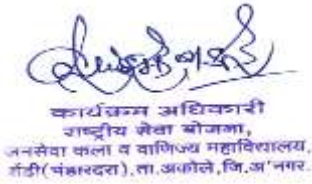 कार्यक्रम अधिकारी
राष्ट्रीय सेवा योजना,
जनसेवा कला व वाणिज्य महाविद्यालय,
शेंडी(भंडारदरा).ता.अकोले,जि.अ'नगर.